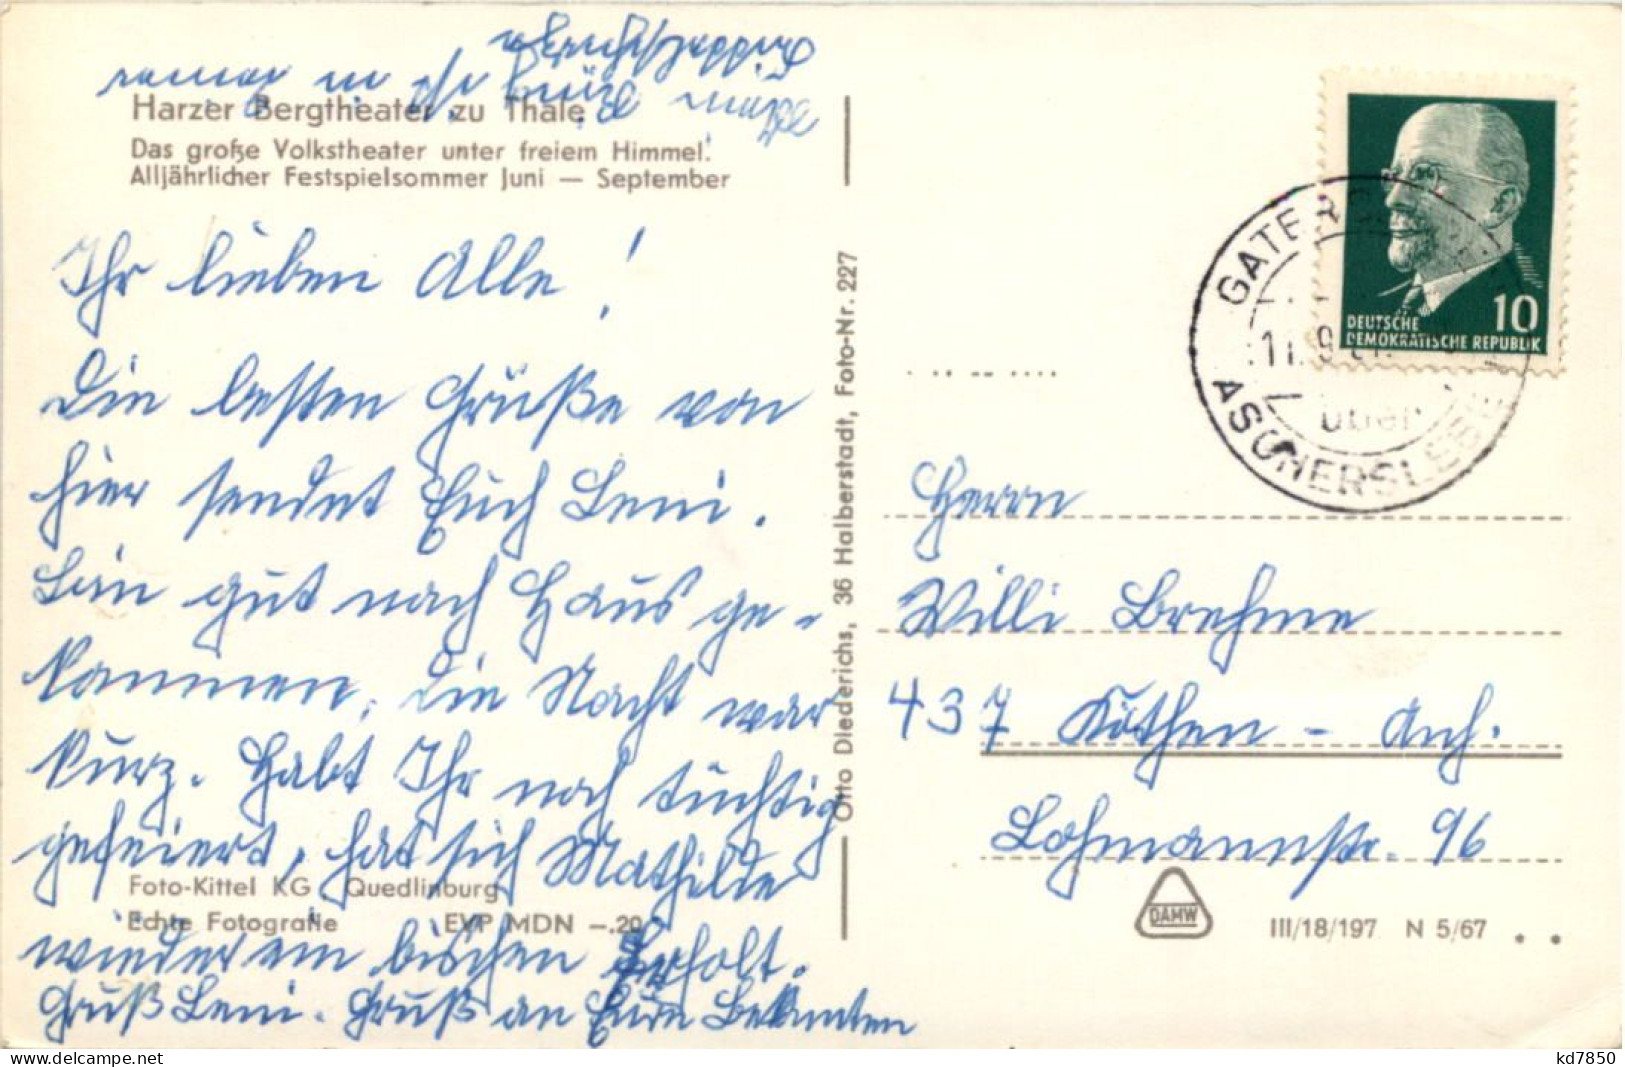 Harzer Bergtheater zu Thale
Das große Volkstheater unter freiem Himmel.
Alljährlicher Festspielsommer Juni — September
Ihr lieben Alle!
Die besten Grüße von
hier sendet Euch Leni.
Bin gut nach Haus ge-
kommen. Die Nacht war
kurz. Habt Ihr noch tüchtig
gefeiert, hat sich Mathilde
wieder ein bischen Erholt.
Gruß Leni. Gruß an Eure Bekannten
Foto-Kittel KG Quedlinburg
Echte Fotografie EVP MDN -.20
Otto Diederichs, 36 Halberstadt, Foto-Nr. 227
DEUTSCHE
DEMOKRATISCHE REPUBLIK
10
GATERS
über
ASCHERSLEBEN
Herrn
Willi Brehme
437 Köthen - Anh.
Lohmannstr. 96
DAMW
III/18/197 N 5/67
kd7850
www.delcampe.net